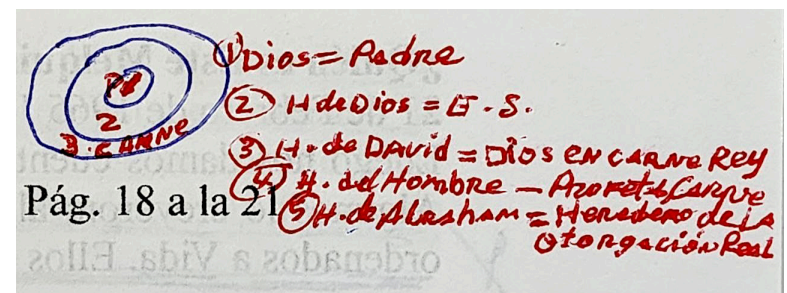 1) Dios = Padre
2) H de Dios = E. S.
3) H. de David = Dios en carne Rey
4) H. del Hombre - Profeta, Carne
5) H. de Abraham = Heredero de la
otorgación Real
2
3. CARNE
Pág. 18 a la 21